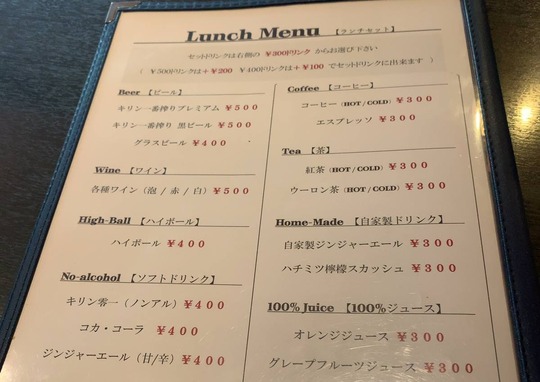 Lunch Menu 【ランチセット】
セットドリンクは右側の ￥300ドリンク からお選び下さい
( ￥500ドリンクは＋￥200 ￥400ドリンクは＋￥100 でセットドリンクに出来ます )
Beer 【ビール】
キリン一番搾りプレミアム ￥500
キリン一番搾り 黒ビール ￥500
グラスビール ￥400
Wine 【ワイン】
各種ワイン（泡 / 赤 / 白）￥500
High-Ball 【ハイボール】
ハイボール ￥400
No-alcohol 【ソフトドリンク】
キリン零一（ノンアル）￥400
コカ・コーラ ￥400
ジンジャーエール（甘/辛）￥400
Coffee 【コーヒー】
コーヒー（HOT / COLD）￥300
エスプレッソ ￥300
Tea 【茶】
紅茶（HOT / COLD）￥300
ウーロン茶（HOT / COLD）￥300
Home-Made 【自家製ドリンク】
自家製ジンジャーエール ￥300
ハチミツ檸檬スカッシュ ￥300
100% Juice 【100%ジュース】
オレンジジュース ￥300
グレープフルーツジュース ￥300